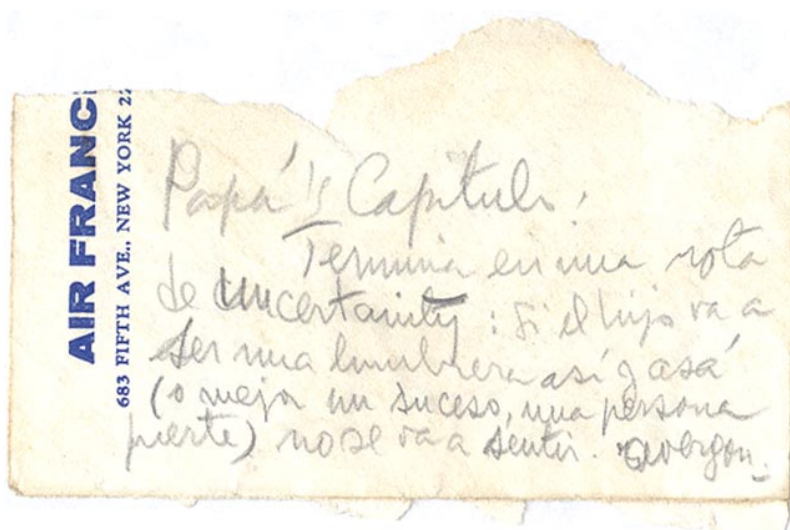 AIR FRANC
683 FIFTH AVE., NEW YORK 22
Papá's Capítulo:
Termina en una nota
de uncertainty: si el hijo va a
ser una lumbrera así y asá
(o mejor un suceso, una persona
fuerte) no se va a sentir. avergon-